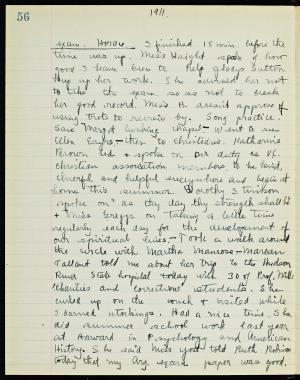 56
1911.
exam. Horace I finished 15 min. before the
time was up. Miss Haight spoke of how
good I have been to help Gladys Sutton
up her work. She advised her not
to take the exam. so as not to break
her good record. Miss H doesn't approve of
using trots to review by. Song practice.
Saw Margot chapel - Went to see
Ellen - then to Christians. Katharine
Brown led & spoke on our duty as V.C.
Christian Association members to be kind,
cheerful and helpful everywhere and begin at
home this summer. Dorothy Stimson
spoke on "as thy day thy strength shall be"
& Miss Griggs on taking a little time
regularly each day for the development of
our spiritual lives - Took a walk around
the circle with Martha - Marian
Tallant told me about her trip to the Hudson
River State hospital today with 30 of Prof. Mills'
Charities and corrections students. She
curled up on the couch & visited while
I darned stockings. Had a nice time. She
did summer school work last year
at Harvard in Psychology and American
History. She said Miss told Ruth
today that my exam paper was good.